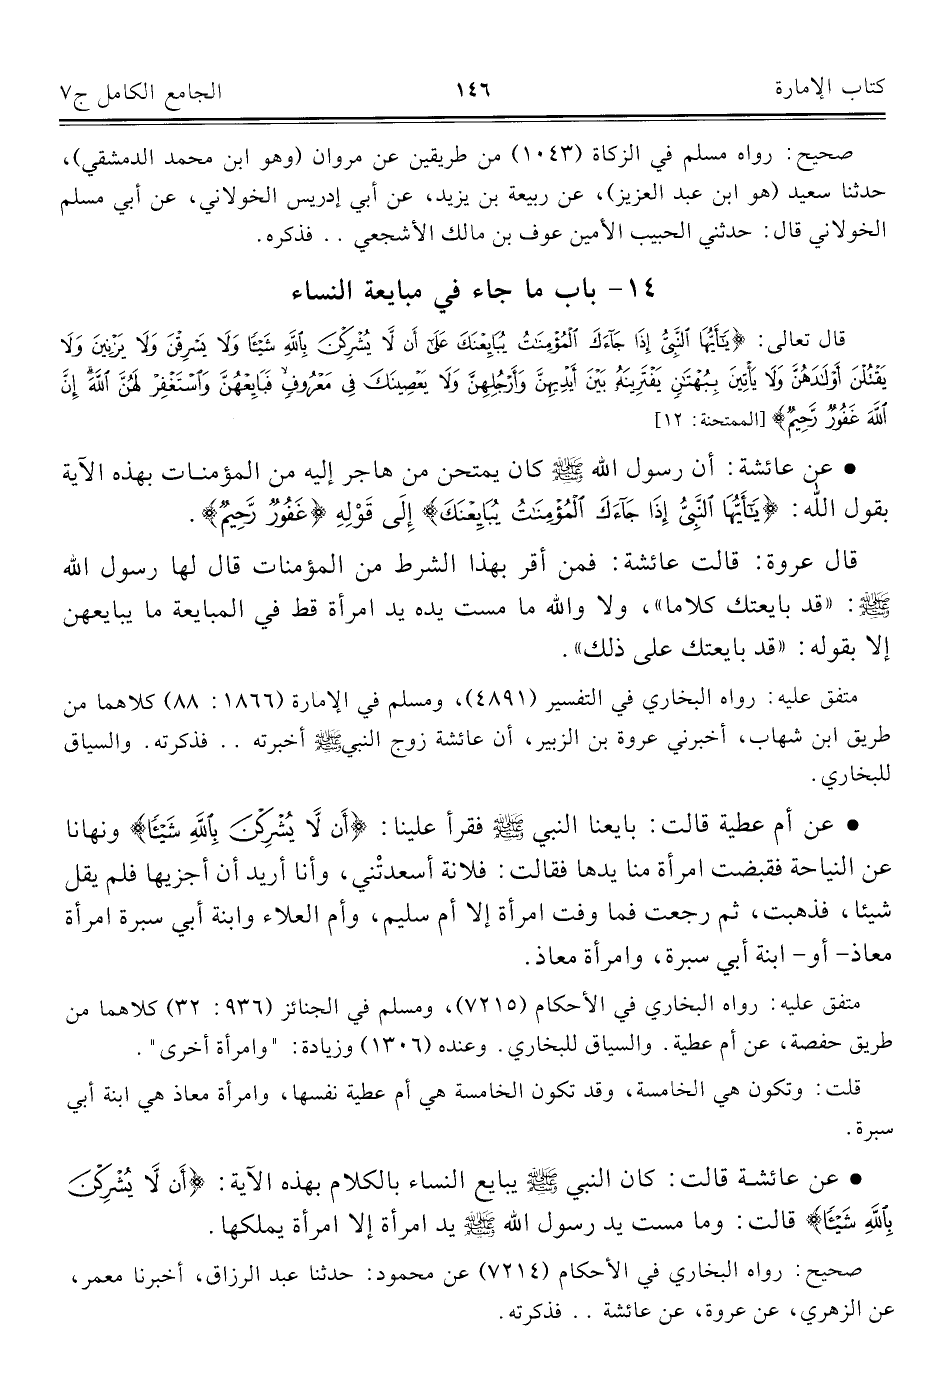 كتاب الإمارة ١٤٦ الجامع الكامل ج٧
صحيح: رواه مسلم في الزكاة (١٠٤٣) من طريقين عن مروان (وهو ابن محمد الدمشقي)،
حدثنا سعيد (هو ابن عبد العزيز)، عن ربيعة بن يزيد، عن أبي إدريس الخولاني، عن أبي مسلم
الخولاني قال: حدثني الحبيب الأمين عوف بن مالك الأشجعي .. فذكره.
١٤- باب ما جاء في مبايعة النساء
قال تعالى: ﴿يَٰٓأَيُّهَا ٱلنَّبِيُّ إِذَا جَآءَكَ ٱلْمُؤْمِنَٰتُ يُبَايِعْنَكَ عَلَىٰٓ أَن لَّا يُشْرِكْنَ بِٱللَّهِ شَيْـًٔا وَلَا يَسْرِقْنَ وَلَا يَزْنِينَ وَلَا
يَقْتُلْنَ أَوْلَٰدَهُنَّ وَلَا يَأْتِينَ بِبُهْتَٰنٍ يَفْتَرِينَهُۥ بَيْنَ أَيْدِيهِنَّ وَأَرْجُلِهِنَّ وَلَا يَعْصِينَكَ فِى مَعْرُوفٍ ۙ فَبَايِعْهُنَّ وَٱسْتَغْفِرْ لَهُنَّ ٱللَّهَ ۖ إِنَّ
ٱللَّهَ غَفُورٌ رَّحِيمٌ﴾ [الممتحنة: ١٢]
• عن عائشة: أن رسول الله ﷺ كان يمتحن من هاجر إليه من المؤمنات بهذه الآية
بقول الله: ﴿يَٰٓأَيُّهَا ٱلنَّبِيُّ إِذَا جَآءَكَ ٱلْمُؤْمِنَٰتُ يُبَايِعْنَكَ﴾ إِلَى قَوْلِهِ ﴿غَفُورٌ رَّحِيمٌ﴾.
قال عروة: قالت عائشة: فمن أقر بهذا الشرط من المؤمنات قال لها رسول الله
ﷺ: «قد بايعتك كلاما»، ولا والله ما مست يده يد امرأة قط في المبايعة ما يبايعهن
إلا بقوله: «قد بايعتك على ذلك».
متفق عليه: رواه البخاري في التفسير (٤٨٩١)، ومسلم في الإمارة (١٨٦٦: ٨٨) كلاهما من
طريق ابن شهاب، أخبرني عروة بن الزبير، أن عائشة زوج النبي ﷺ أخبرته .. فذكرته. والسياق
للبخاري.
• عن أم عطية قالت: بايعنا النبي ﷺ فقرأ علينا: ﴿أَن لَّا يُشْرِكْنَ بِٱللَّهِ شَيْـًٔا﴾ ونهانا
عن النياحة فقبضت امرأة منا يدها فقالت: فلانة أسعدتْني، وأنا أريد أن أجزيها فلم يقل
شيئا، فذهبت، ثم رجعت فما وفت امرأة إلا أم سليم، وأم العلاء وابنة أبي سبرة امرأة
معاذ- أو- ابنة أبي سبرة، وامرأة معاذ.
متفق عليه: رواه البخاري في الأحكام (٧٢١٥)، ومسلم في الجنائز (٩٣٦: ٣٢) كلاهما من
طريق حفصة، عن أم عطية. والسياق للبخاري. وعنده (١٣٠٦) وزيادة: "وامرأة أخرى".
قلت: وتكون هي الخامسة، وقد تكون الخامسة هي أم عطية نفسها، وامرأة معاذ هي ابنة أبي
سبرة.
• عن عائشة قالت: كان النبي ﷺ يبايع النساء بالكلام بهذه الآية: ﴿أَن لَّا يُشْرِكْنَ
بِٱللَّهِ شَيْـًٔا﴾ قالت: وما مست يد رسول الله ﷺ يد امرأة إلا امرأة يملكها.
صحيح: رواه البخاري في الأحكام (٧٢١٤) عن محمود: حدثنا عبد الرزاق، أخبرنا معمر،
عن الزهري، عن عروة، عن عائشة .. فذكرته.